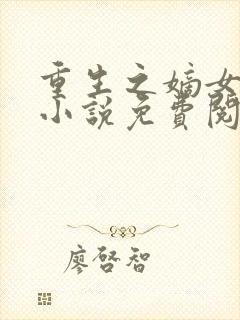 重生之嫡女
小說免費閱
廖啓智